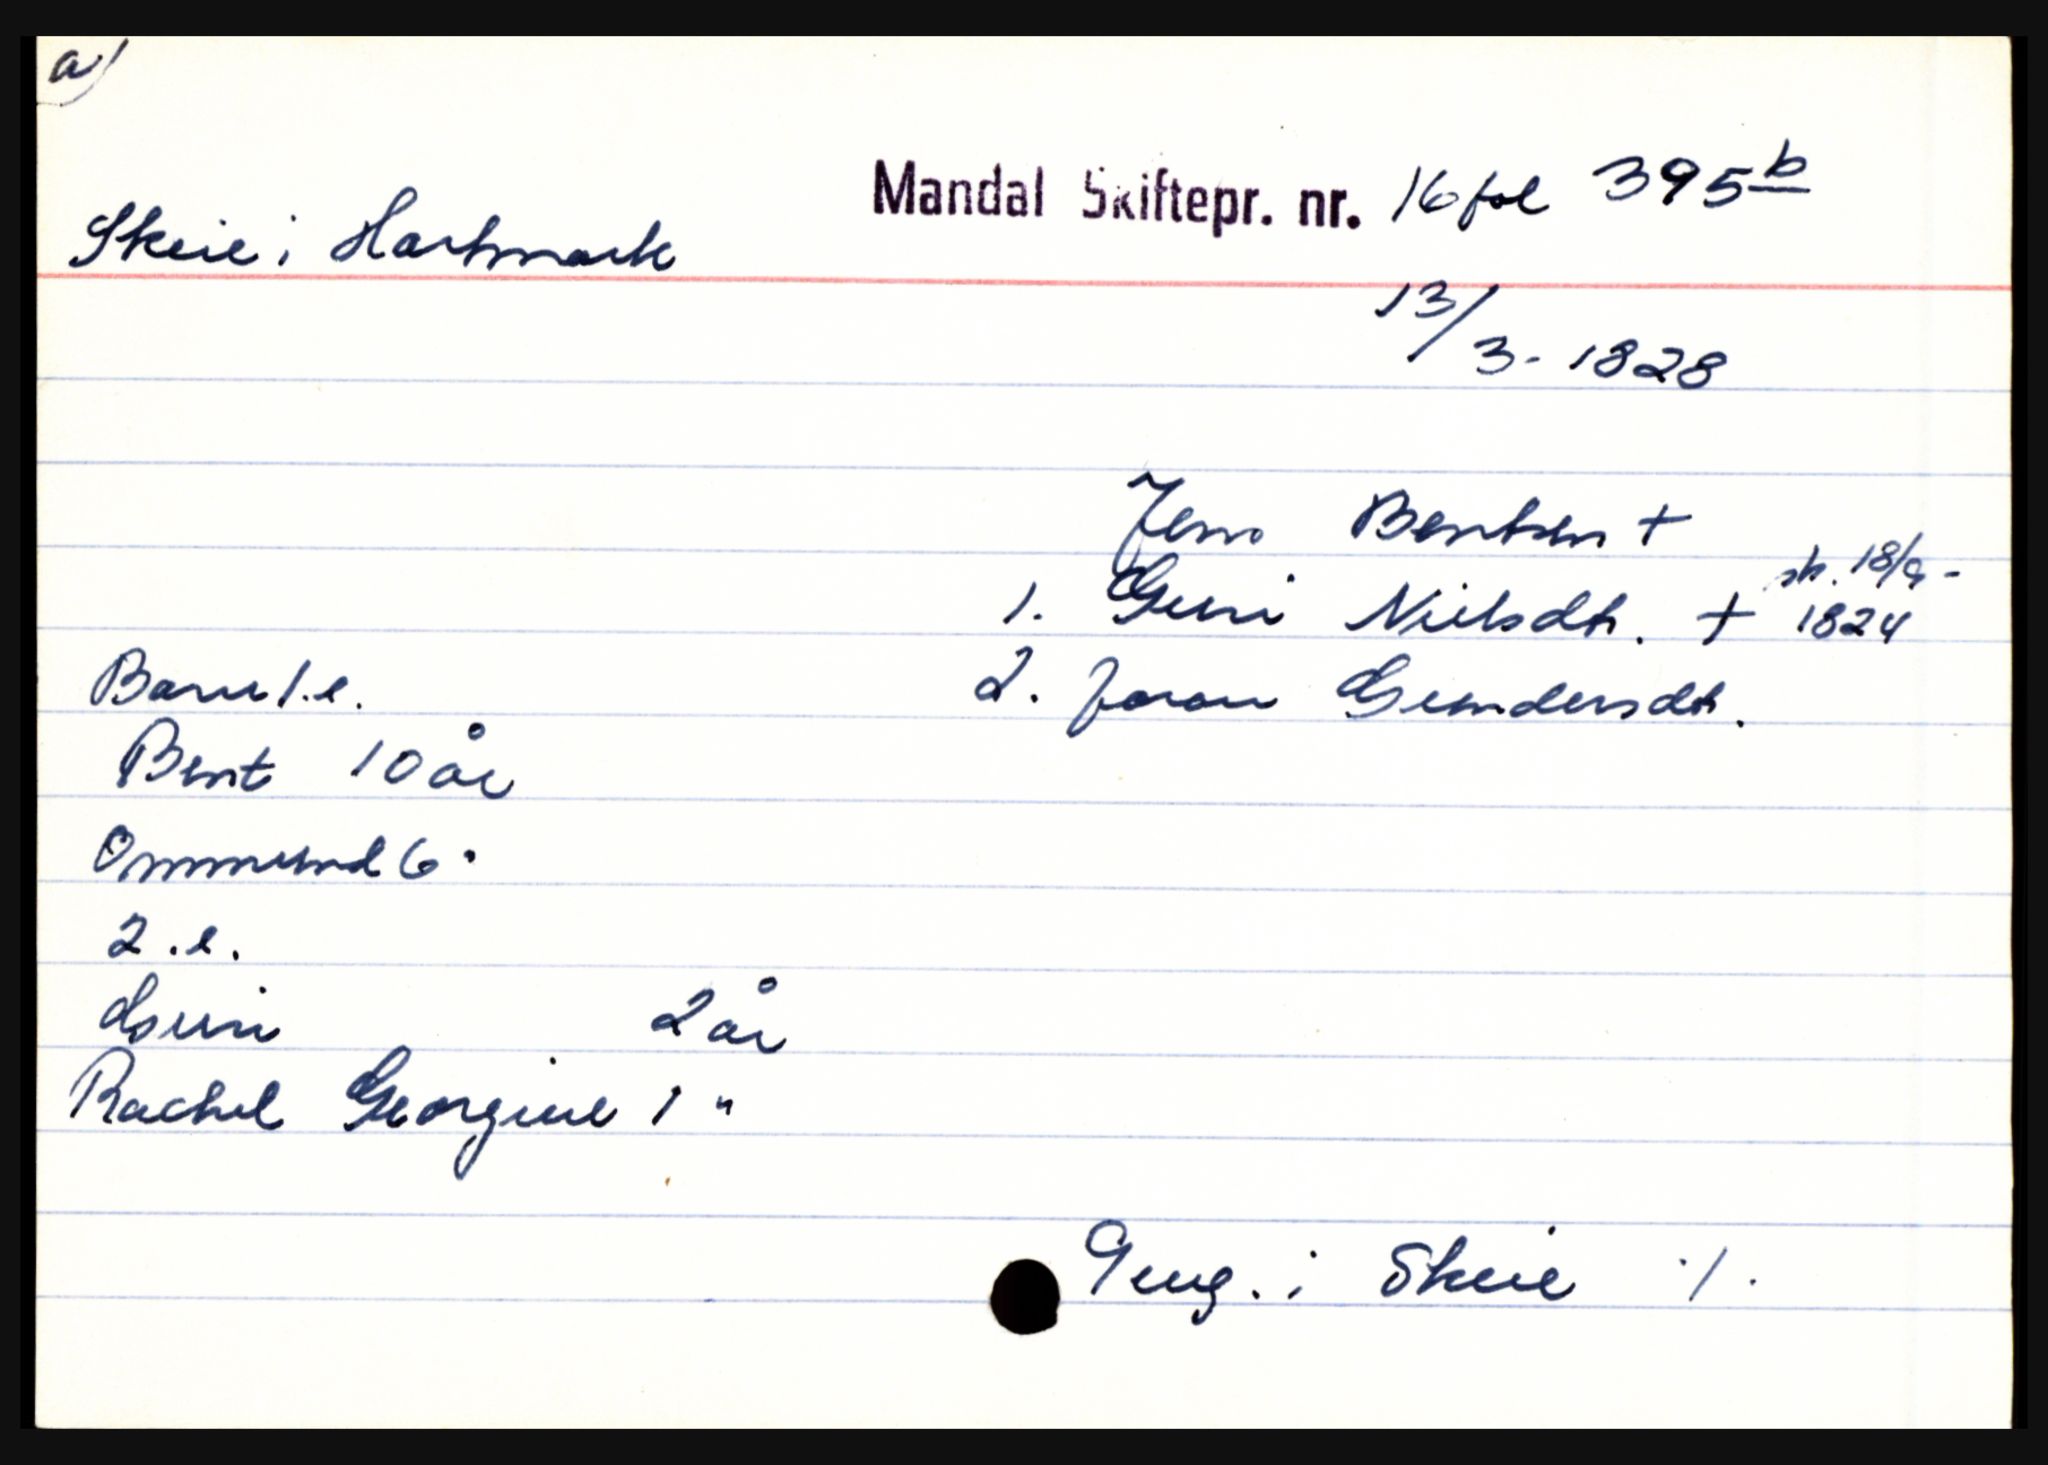 a)
Mandal Skiftepr. nr. 16 fol 395 b
Skeie i Hartmark
13/3 - 1828
Jens Bentsen +
1. Guri Nielsdtr. + sk. 18/9 - 1824
2. Joron Gundersdtr.
Barn 1. e.
Bent 10 år
Ommund 6 "
2. e.
Guri 2 år
Rachel Georgine 1 "
Geug. i Skeie ./.